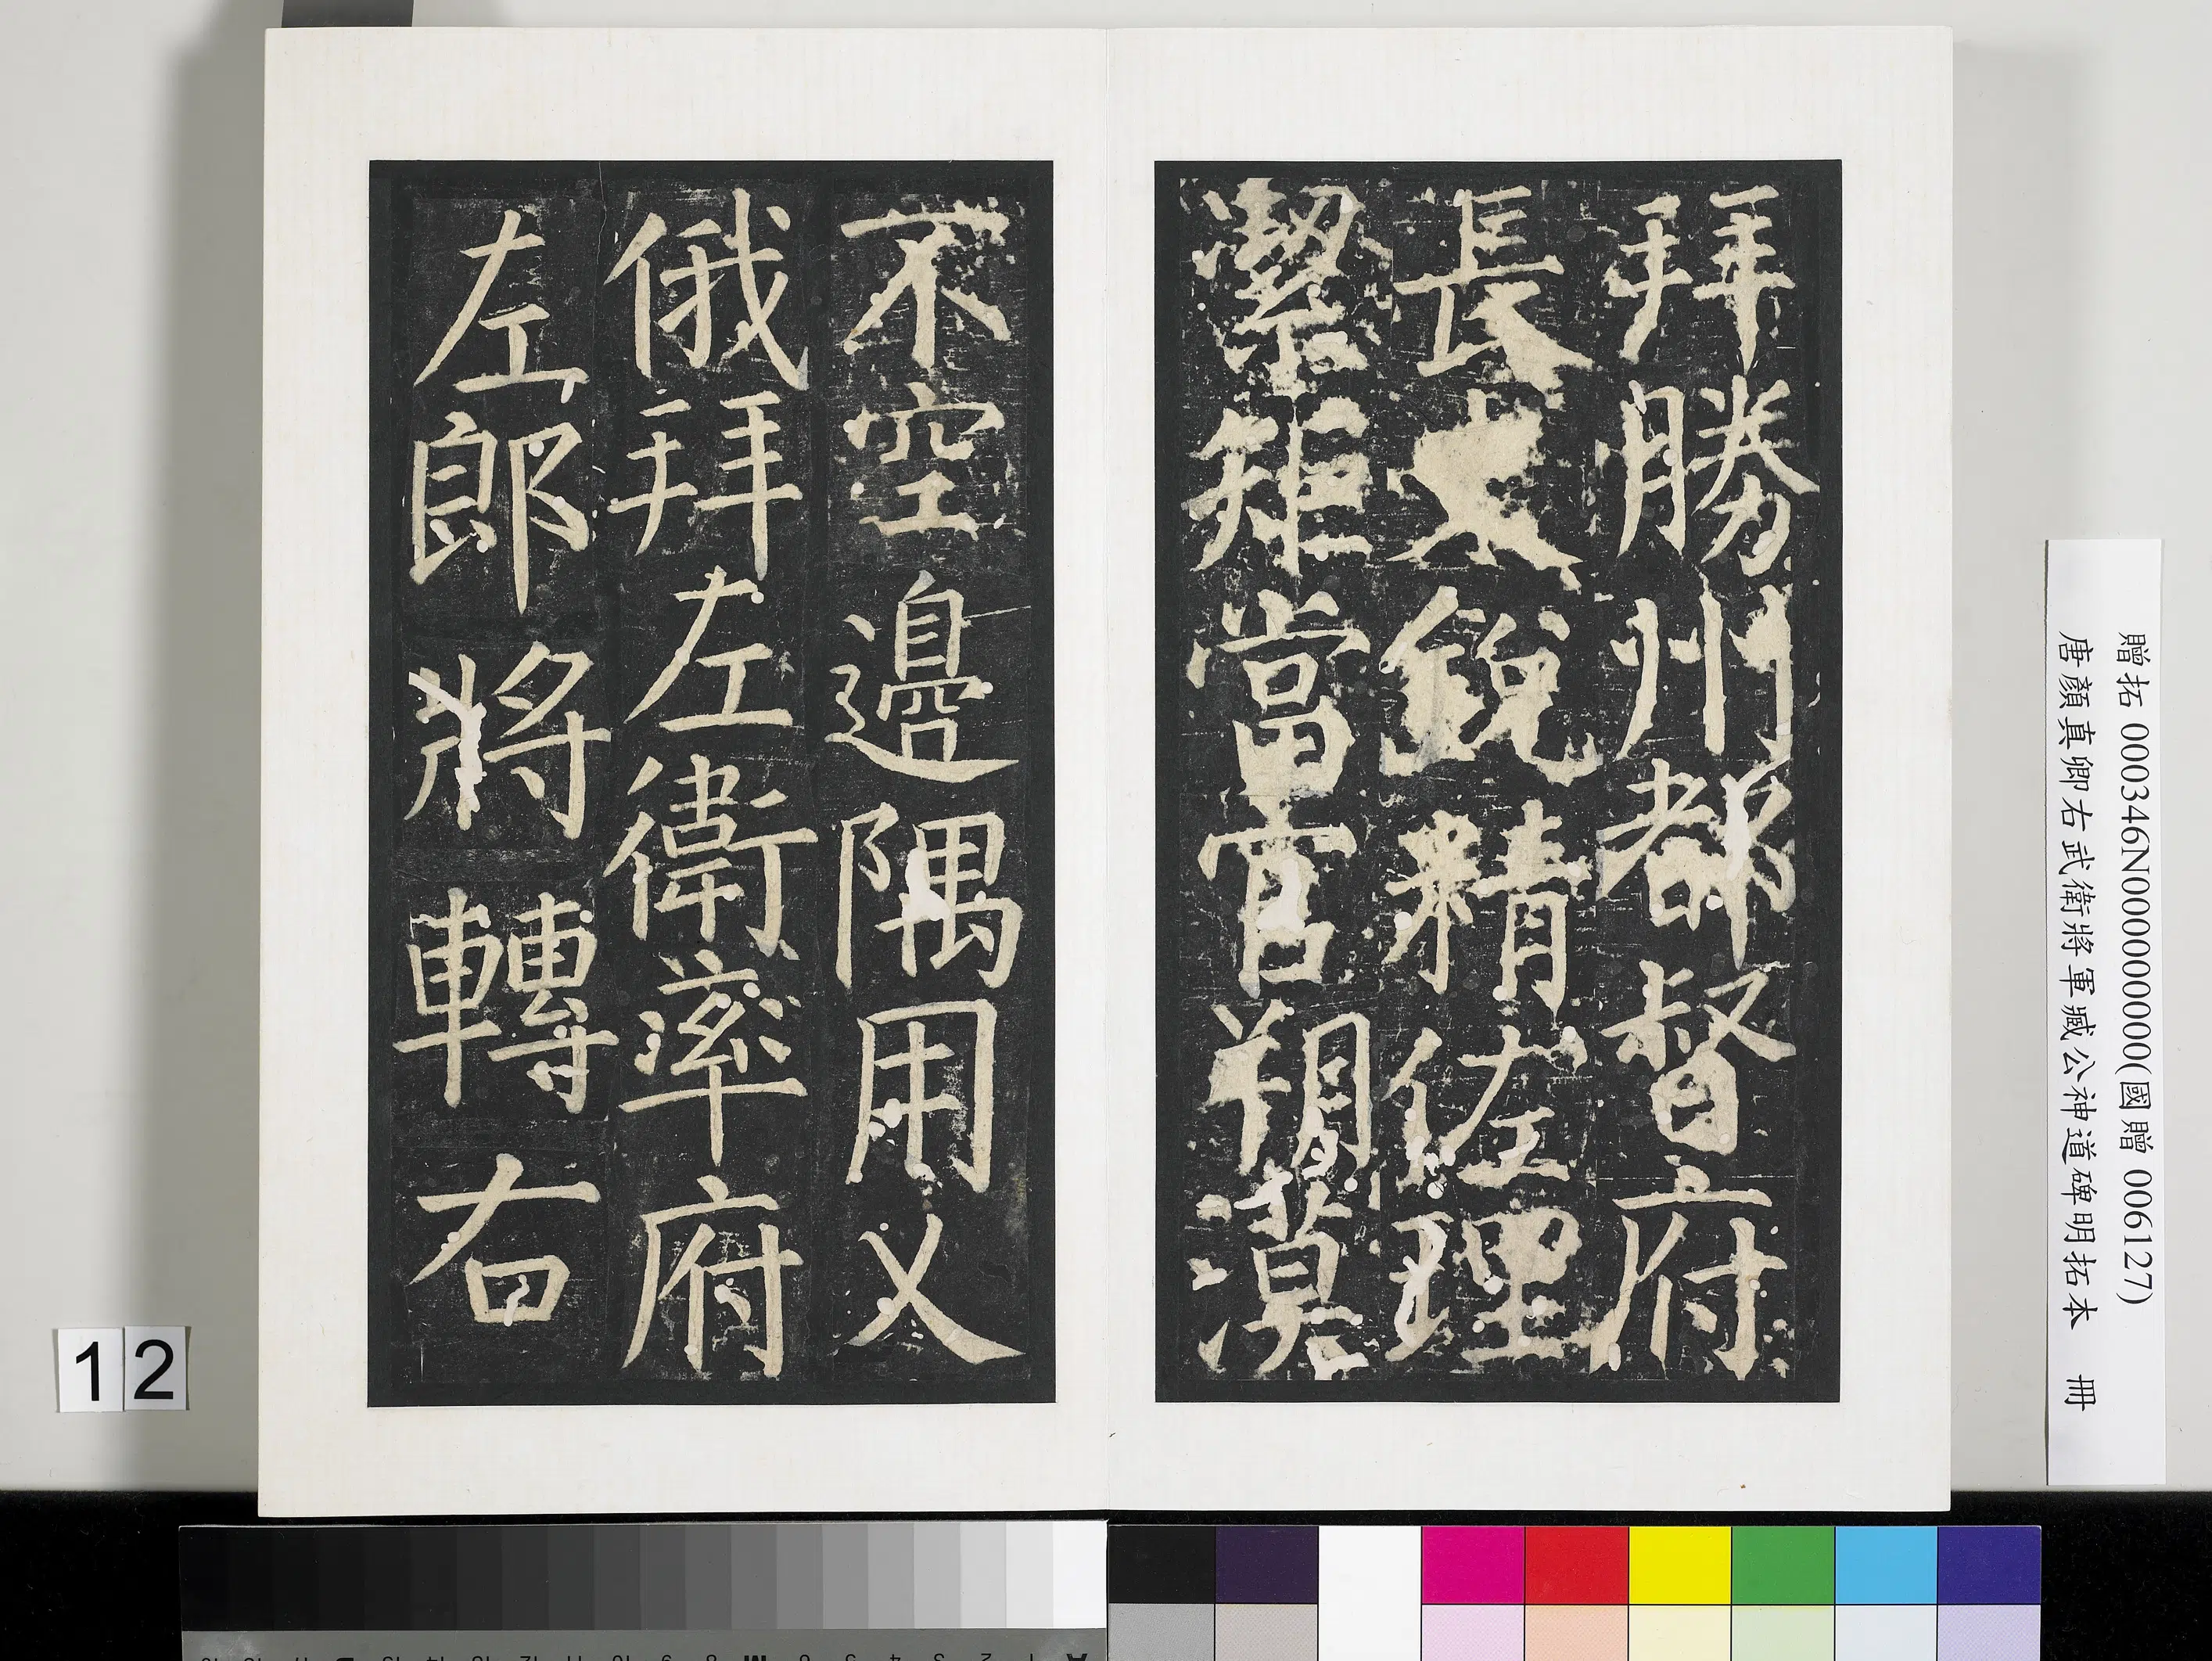 拜勝州都督府
長史銳精佐理
潔矩當官朔漠
不空邊隅用乂
俄拜左衛率府
左郎將轉右
贈拓 000346N000000000(國贈 006127)
唐顏真卿右武衛將軍臧公神道碑明拓本 冊
12